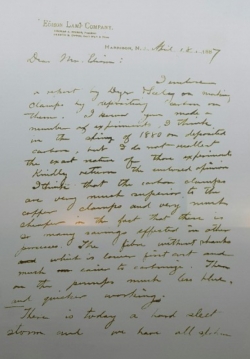 EDISON LAMP COMPANY.
HARRISON, N. J., April 12 1887
Dear Mr. Edison:
I enclose
a report by Dyer Seeley on making
clamps by depositing carbon on
them. I know you made a
number of experiments I think
in the spring of 1882 on deposited
carbon, but I do not recollect
the exact nature of those experiments
Kindly return the enclosed opinion
I think that the carbon clamps
are very much superior to the
copper clamps and very much
cheaper in the fact that there is
so many savings effected in other
process. The fibre without shanks
which is lower first cost and
much easier to carbonize. Then
on the pumps much less blue,
and quicker working.
There is today a hard sleet
storm and we have all